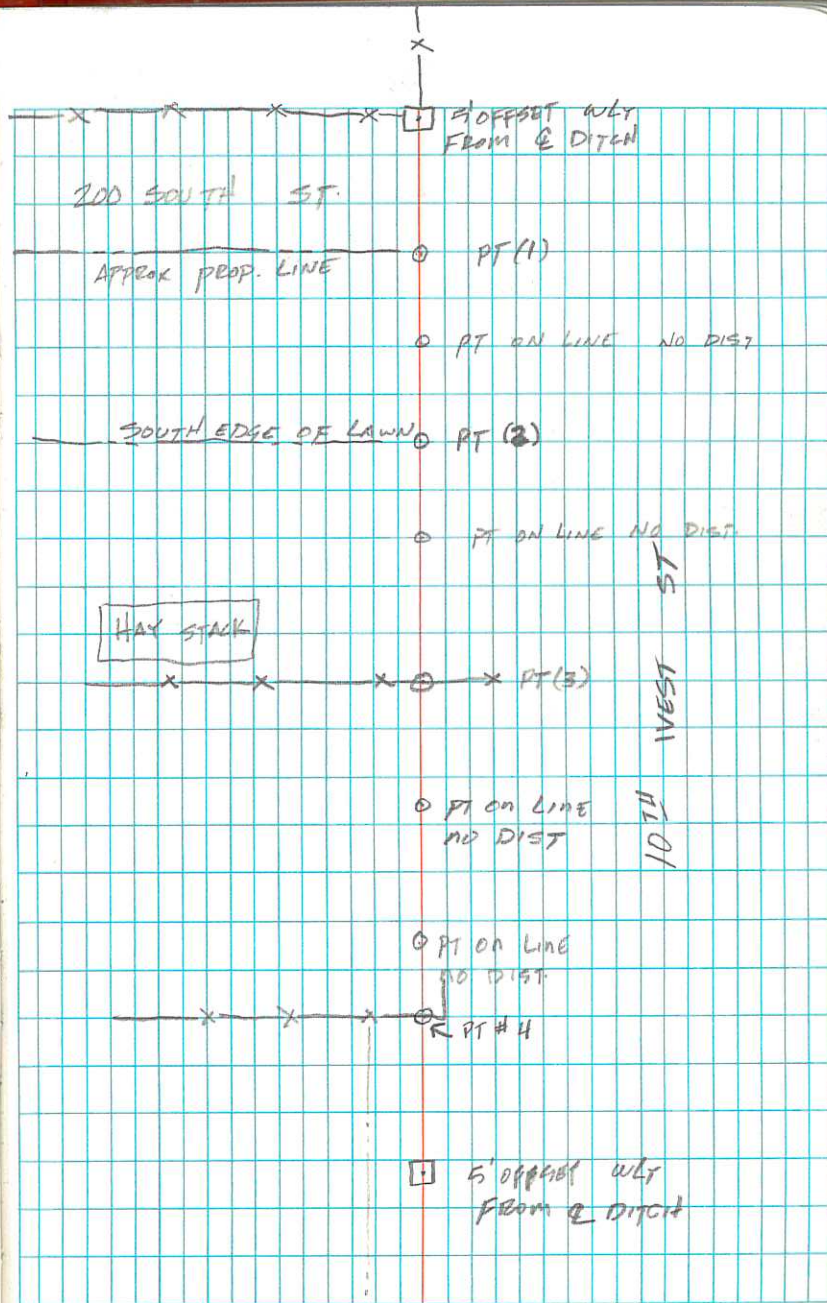 5' OFFSET WLY
FROM ℄ DITCH
200 SOUTH ST.
PT (1)
APPROX PROP. LINE
PT ON LINE NO DIST
SOUTH EDGE OF LAWN
PT (2)
PT ON LINE NO DIST.
HAY STACK
PT (3)
10TH WEST ST
PT ON LINE
NO DIST
PT ON LINE
NO DIST.
PT # 4
5' OFFSET WLY
FROM ℄ DITCH